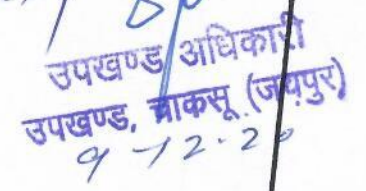 उपखण्ड अधिकारी
उपखण्ड, चाकसू (जयपुर)
9-12-20